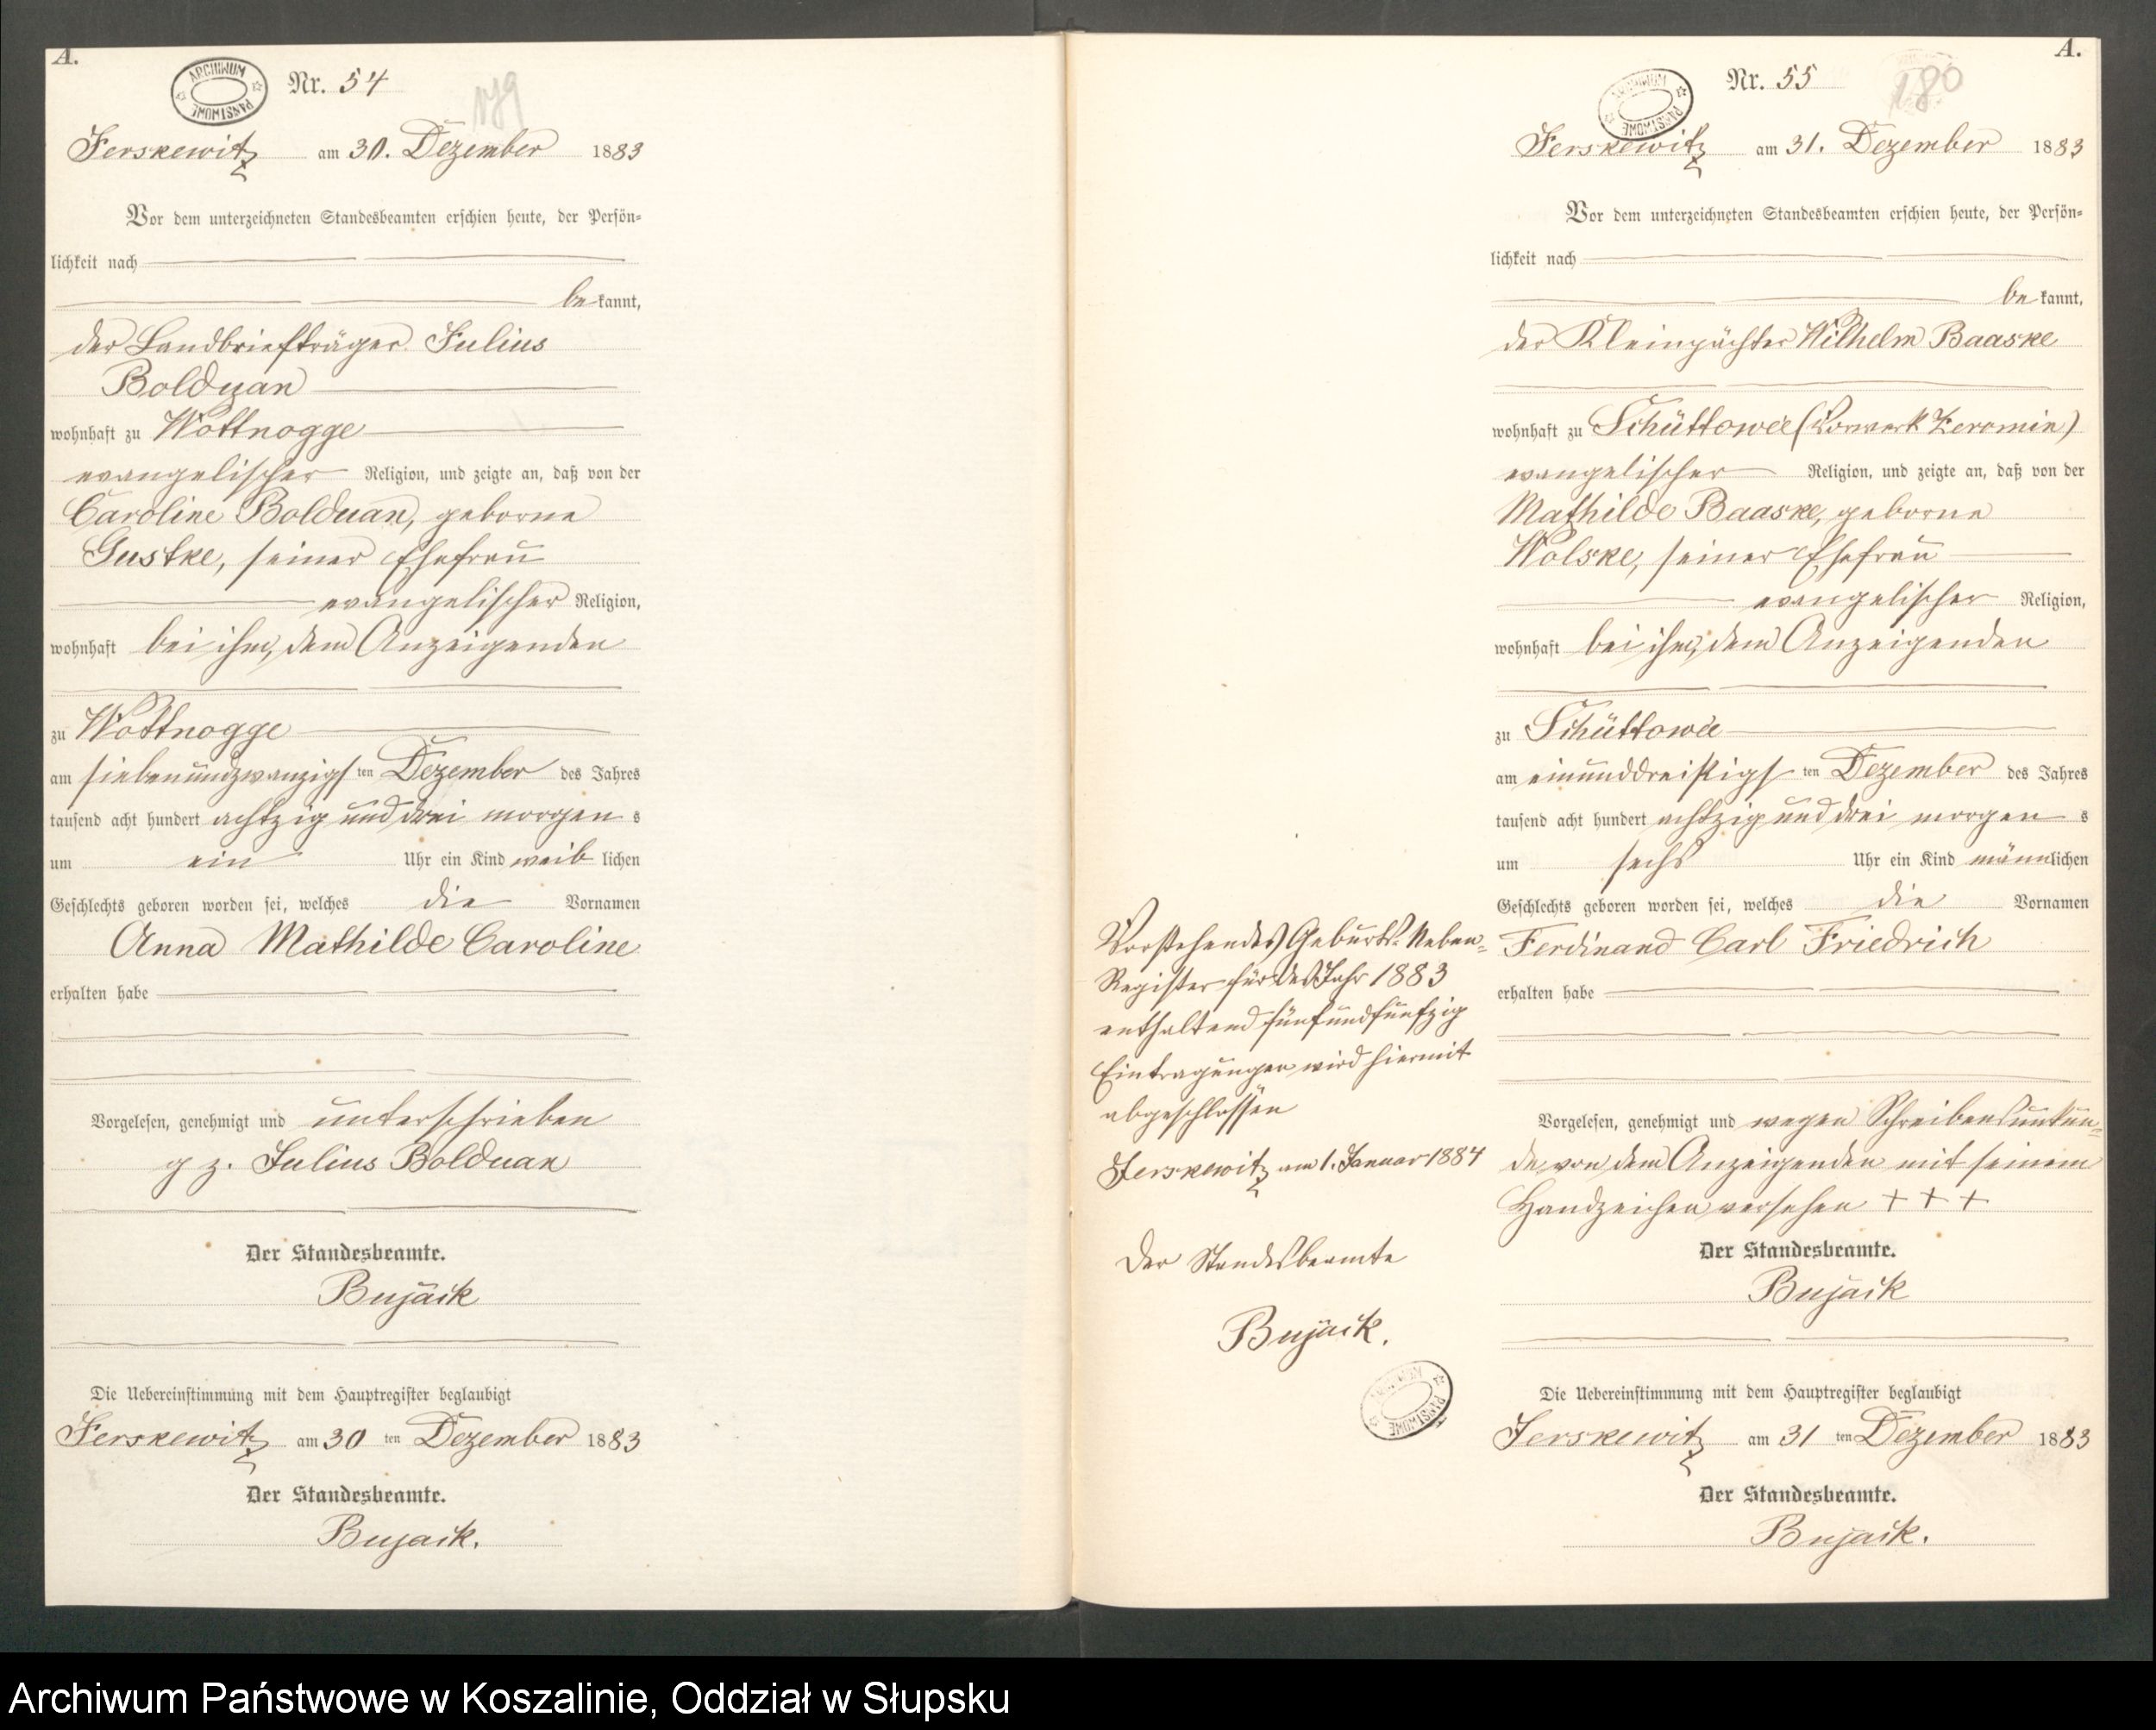 A.
ARCHIWUM PAŃSTWOWE
Nr. 54
179
Jerskewitz am 30. Dezember 1883
Vor dem unterzeichneten Standesbeamten erschien heute, der Persön-
lichkeit nach
be kannt,
der Landbriefträger Julius
Bolduan
wohnhaft zu Wottnogge
evangelischer Religion, und zeigte an, daß von der
Caroline Bolduan, geborne
Gustke, seiner Ehefrau
evangelischer Religion,
wohnhaft bei ihm, dem Anzeigenden
zu Wottnogge
am siebenundzwanzigs ten Dezember des Jahres
tausend acht hundert achtzig und drei morgen s
um ein Uhr ein Kind weib lichen
Geschlechts geboren worden sei, welches die Vornamen
Anna Mathilde Caroline
erhalten habe
Vorgelesen, genehmigt und unterschrieben
gz. Julius Bolduan
Der Standesbeamte.
Bujack
Die Uebereinstimmung mit dem Hauptregister beglaubigt
Jerskewitz am 30 ten Dezember 1883
Der Standesbeamte.
Bujack.
Vorstehendes Geburts-Neben-
Register für das Jahr 1883
enthaltend fünfundfünfzig
Eintragungen wird hiermit
abgeschlossen
Jerskewitz am 1. Januar 1884
Der Standesbeamte
Bujack.
ARCHIWUM PAŃSTWOWE
A.
ARCHIWUM PAŃSTWOWE
Nr. 55
180
Jerskewitz am 31. Dezember 1883
Vor dem unterzeichneten Standesbeamten erschien heute, der Persön-
lichkeit nach
be kannt,
der Kleinpächter Wilhelm Baaske
wohnhaft zu Schüttowee (Vorwerk Zeromin)
evangelischer Religion, und zeigte an, daß von der
Mathilde Baaske, geborne
Wolske, seiner Ehefrau
evangelischer Religion,
wohnhaft bei ihm, dem Anzeigenden
zu Schüttowee
am einunddreißigs ten Dezember des Jahres
tausend acht hundert achtzig und drei morgen s
um sechs Uhr ein Kind männlichen
Geschlechts geboren worden sei, welches die Vornamen
Ferdinand Carl Friedrich
erhalten habe
Vorgelesen, genehmigt und wegen Schreibensunkun-
de von dem Anzeigenden mit seinem
Handzeichen versehen + + +
Der Standesbeamte.
Bujack
Die Uebereinstimmung mit dem Hauptregister beglaubigt
Jerskewitz am 31 ten Dezember 1883
Der Standesbeamte.
Bujack.
Archiwum Państwowe w Koszalinie, Oddział w Słupsku